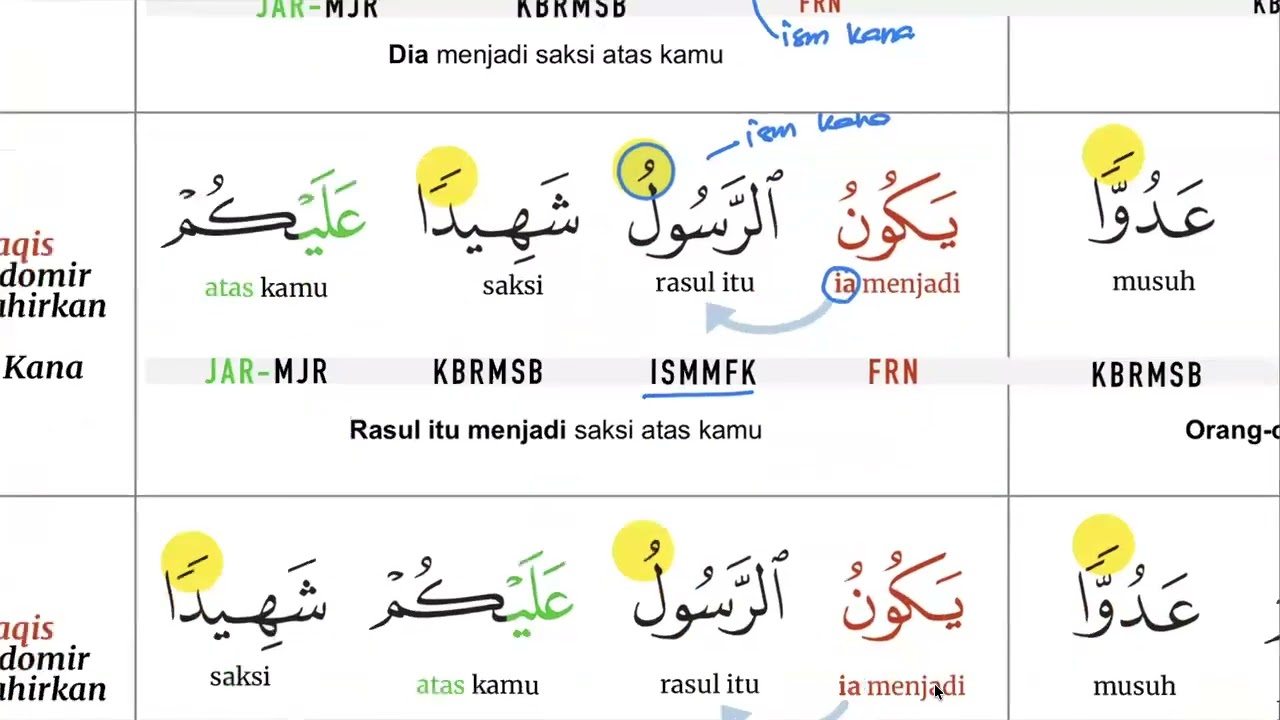 JAR-MJR KBRMSB FRN
ism kana
Dia menjadi saksi atas kamu
ism kana
يَكُونُ ٱلرَّسُولُ شَهِيدًا عَلَيْكُمْ
عَدُوًّا
atas kamu saksi rasul itu ia menjadi
musuh
aqis
domir
ahirkan
Kana
JAR-MJR KBRMSB ISMMFK FRN
KBRMSB
Rasul itu menjadi saksi atas kamu
Orang-
يَكُونُ ٱلرَّسُولُ عَلَيْكُمْ شَهِيدًا
عَدُوًّا
saksi atas kamu rasul itu ia menjadi
musuh
aqis
domir
ahirkan